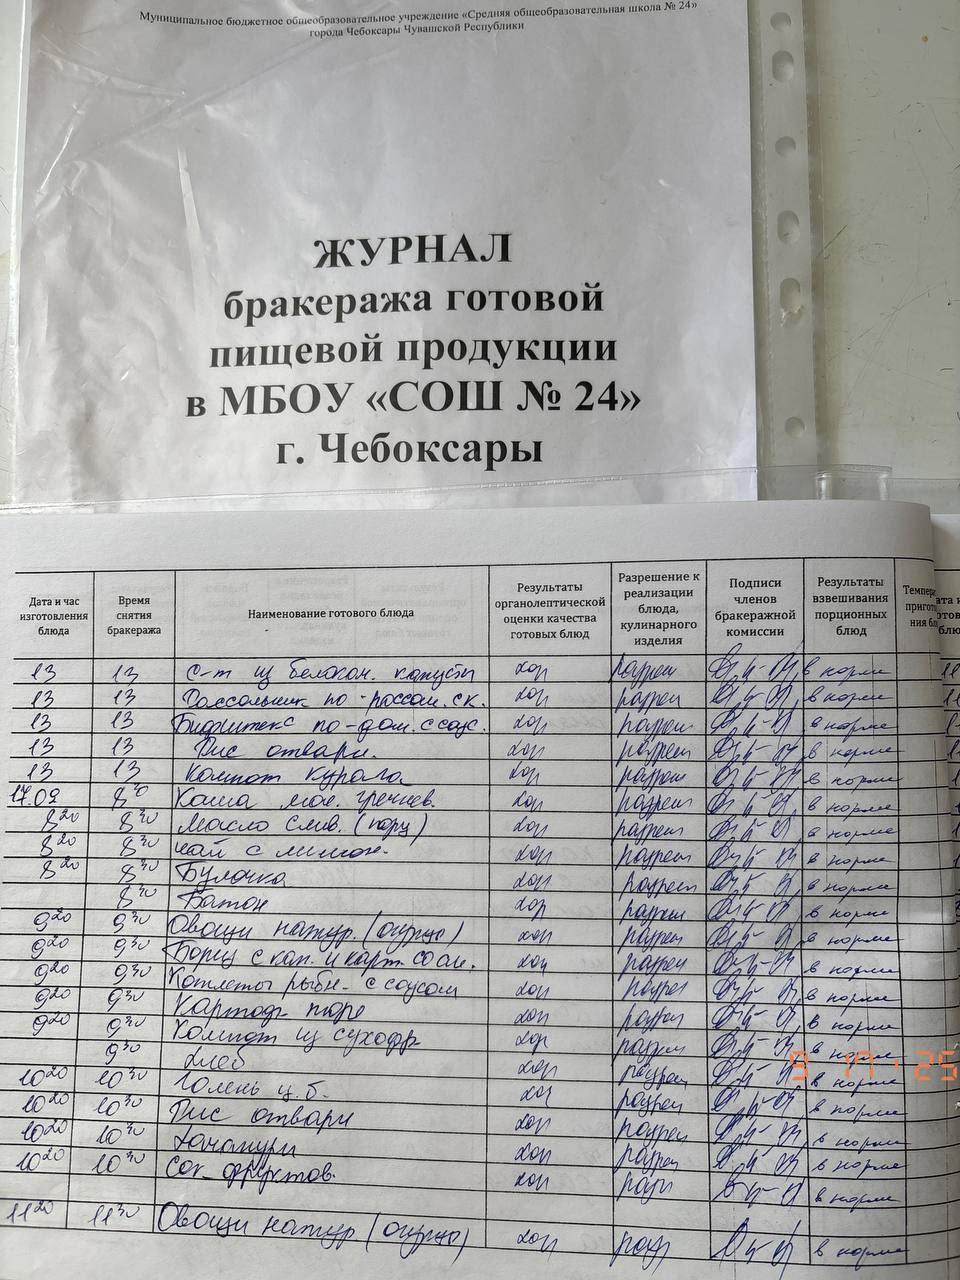 Муниципальное бюджетное общеобразовательное учреждение «Средняя общеобразовательная школа № 24»
города Чебоксары Чувашской Республики
ЖУРНАЛ
бракеража готовой
пищевой продукции
в МБОУ «СОШ № 24»
г. Чебоксары
Дата и час изготовления блюда Время снятия бракеража Наименование готового блюда Результаты органолептической оценки качества готовых блюд Разрешение к реализации блюда, кулинарного изделия Подписи членов бракеражной комиссии Результаты взвешивания порционных блюд
13 13 с-т из белокоч. капусты хор разреш в норме
13 13 Рассольник по-россош. ск. хор разреш в норме
13 13 Бифштекс по-дом. с соус. хор разреш в норме
13 13 Рис отварн. хор разреш в норме
13 13 Компот курага хор разреш в норме
17.09 8 30 Каша мол. гречнев. хор разреш в норме
8 20 8 30 Масло слив. (порц) хор разреш в норме
8 20 8 30 чай с лимон. хор разреш в норме
8 20 8 30 Булочка хор разреш в норме
8 30 Батон хор разреш в норме
9 20 9 30 Овощи натур. (огурцы) хор разреш в норме
9 20 9 30 Борщ с кап. и карт. со см. хор разреш в норме
9 20 9 30 Котлеты рыбн. с соусом хор разреш в норме
9 20 9 30 Картоф. пюре хор разреш в норме
9 20 9 30 Компот из сухофр хор разреш в норме
9 30 Хлеб хор разреш в норме
10 20 10 30 Голень ц.б. хор разреш в норме
10 20 10 30 Рис отварн хор разреш в норме
10 20 10 30 хор разреш в норме
10 20 10 30 Сок фруктов. хор разр в норме
11 20 11 30 Овощи натур (огурцы) хор разр в норме
9 17 '25